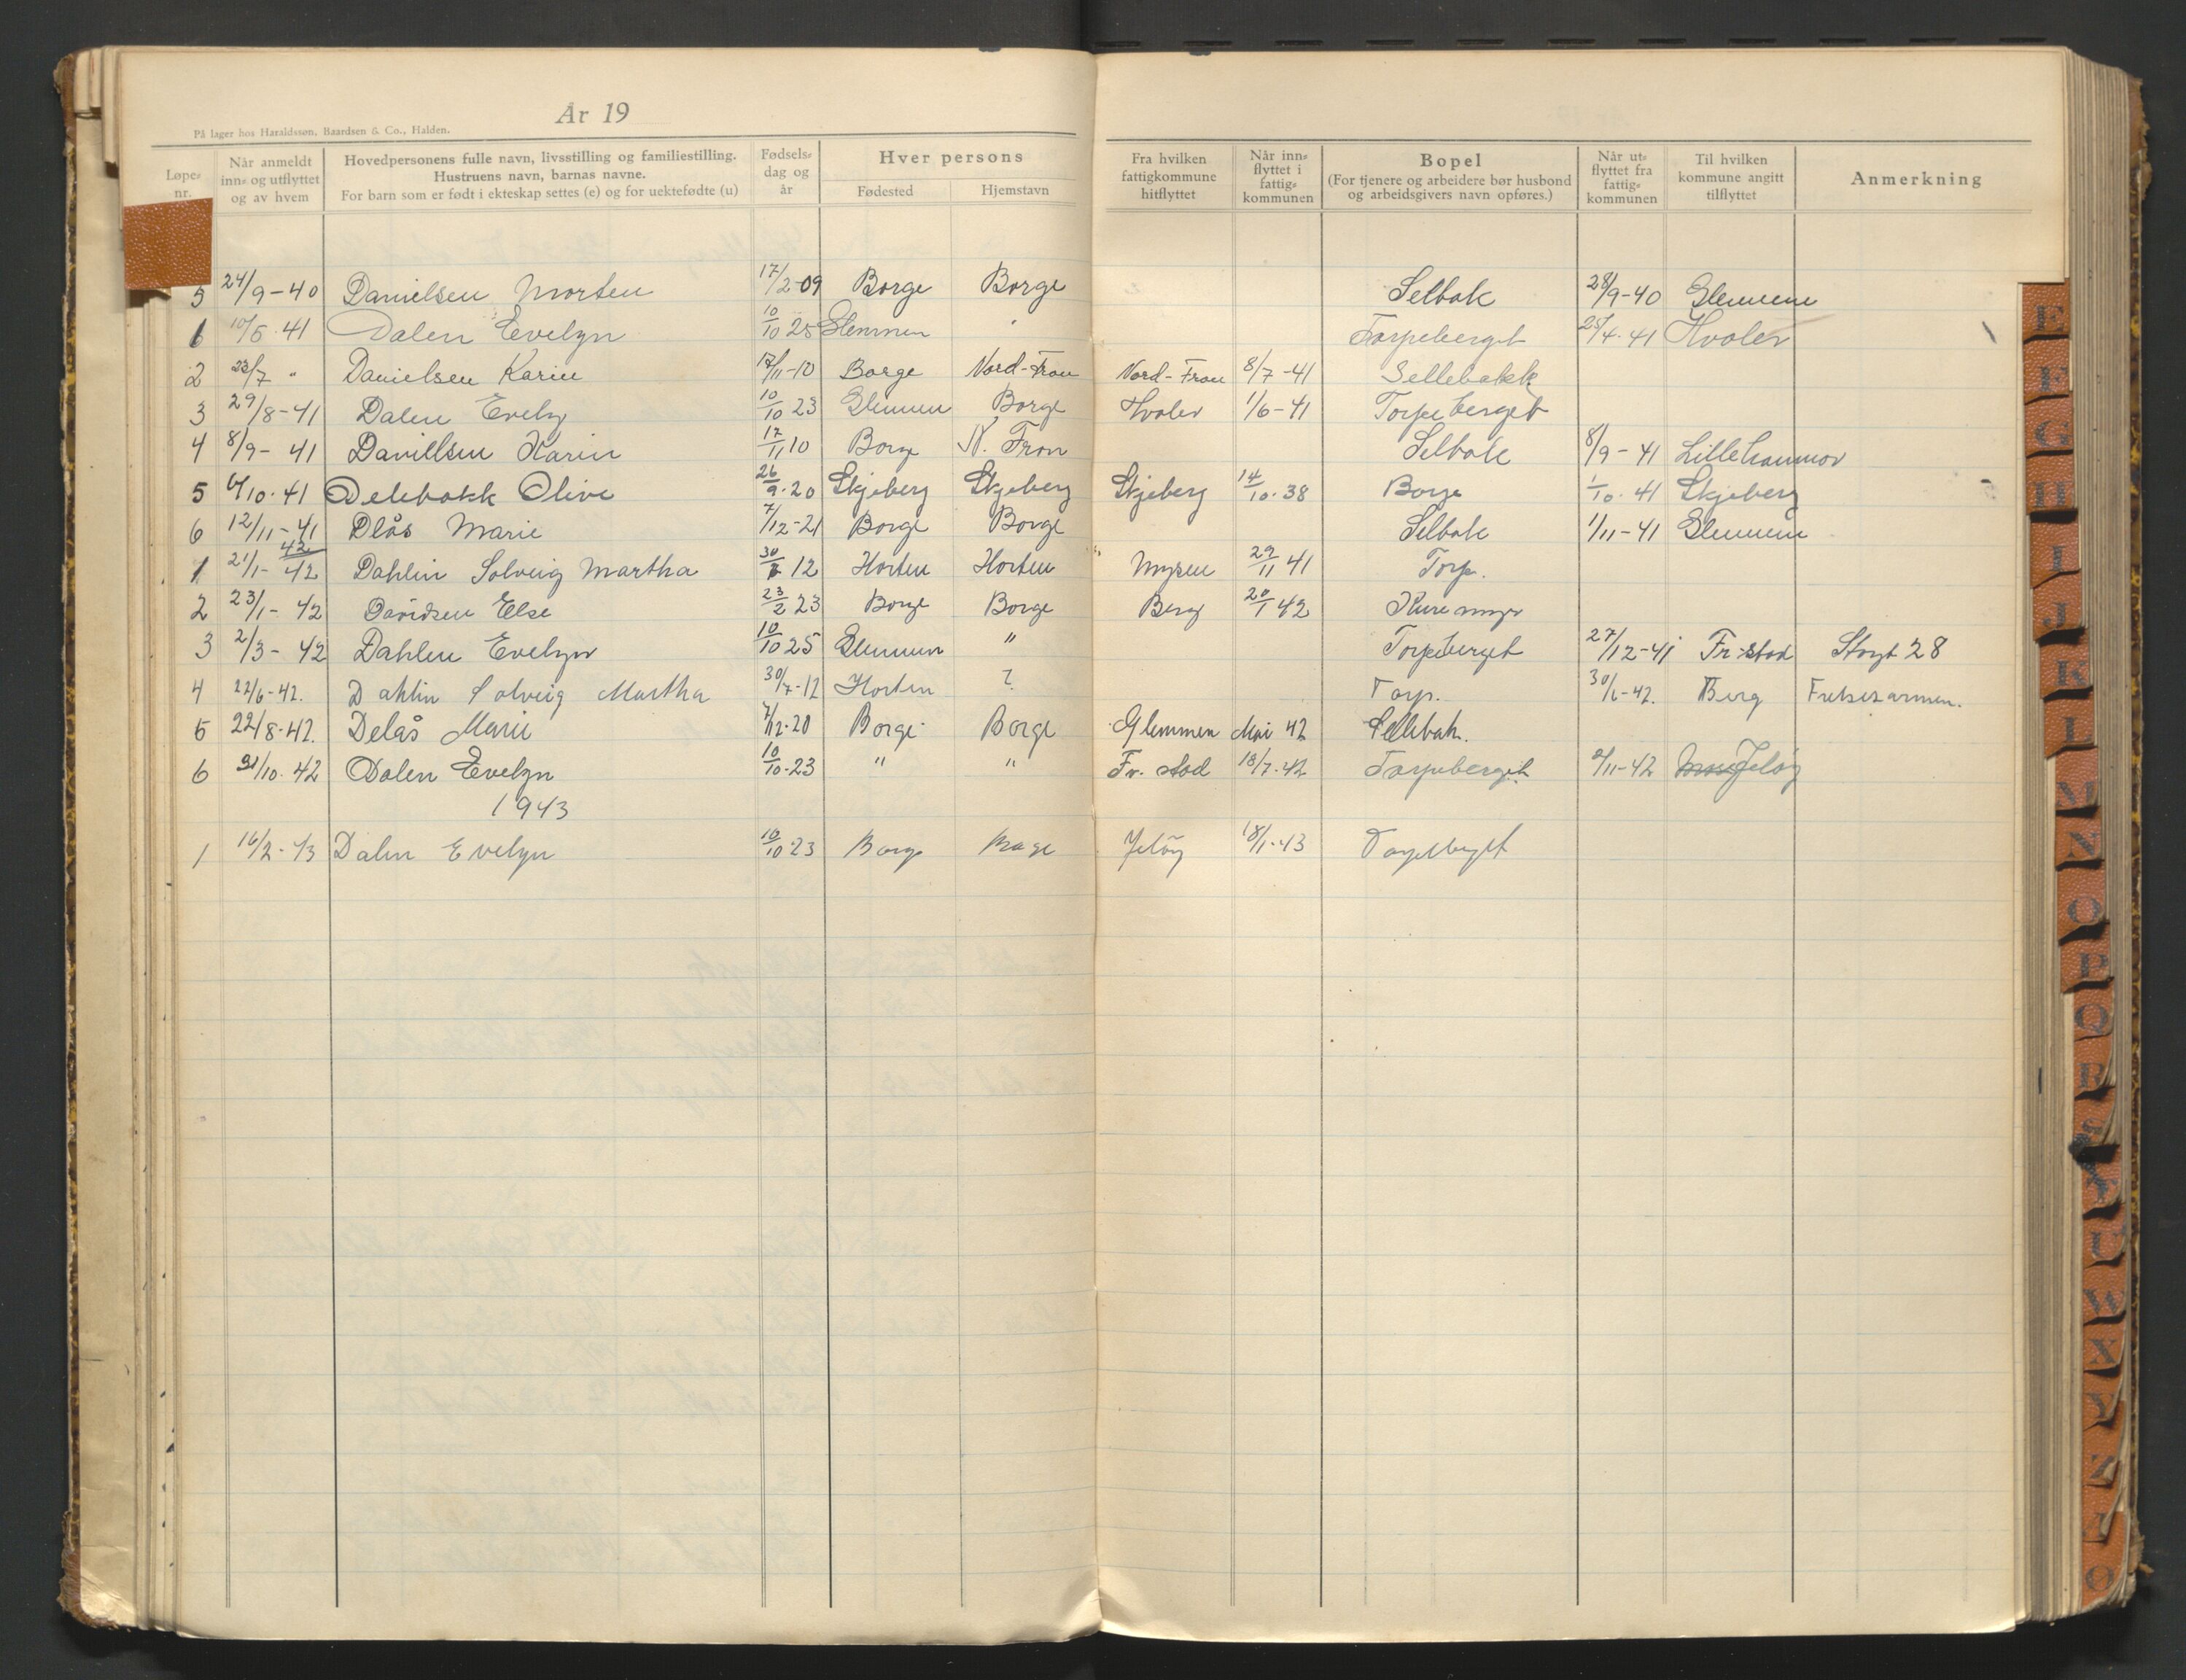 År 19
På lager hos Haraldssøn, Baardsen & Co., Halden.
Løpe-nr. | Når anmeldt inn- og utflyttet og av hvem | Hovedpersonens fulle navn, livsstilling og familiestilling. Hustruens navn, barnas navne. For barn som er født i ekteskap settes (e) og for uektefødte (u) | Fødsels-dag og år | Hver persons Fødested | Hjemstavn | Fra hvilken fattigkommune hitflyttet | Når inn-flyttet i fattig-kommunen | Bopel (For tjenere og arbeidere bør husbond og arbeidsgivers navn opføres.) | Når ut-flyttet fra fattig-kommunen | Til hvilken kommune angitt tilflyttet | Anmerkning
5 24/9-40 Danielsen Morten 17/2-09 Borge Borge Selbak 28/9-40 Glemmen
1 10/5.41 Dalen Evelyn 10/10 25 Glemmen Torpeberget 25/4.41 Hvaler
2 23/7 " Danielsen Karin 17/11-10 Borge Nord-Fron Nord-Fron 8/7-41 Sellebakk
3 29/8-41 Dalen Evely 10/10 23 Glemmen Borge Hvaler 1/6-41 Torpeberget
4 8/9-41 Danillsen Karin 17/11 10 Borge N. Fron Selbak 8/9-41 Lillehammer
5 /10.41 Delebakk Olive 26/9.20 Skjeberg Skjeberg Skjeberg 14/10.38 Borge 1/10.41 Skjeberg
6 12/11-41 Dlås Marie 7/12-21 Borge Borge Selbak 1/11-41 Glemmen
42
1 21/1-42 Dahlin Solveig Martha 30/ 12 Horten Horten Mysen 29/11 41 Torp.
2 23/1-42 Davidsen Else 23/2 23 Borge Borge Berg 20/1 42 Kure
3 2/3-42 Dahlen Evelyn 10/10 25 Glemmen " Torpeberget 27/12-41 Fr-stad Storgt 28
4 22/6-42. Dahlin Solveig Martha 30/7-12 Horten ? Torp. 30/6-42. Berg Frelsesarmen.
5 22/8-42. Delås Marie 7/12-20 Borge Borge Glemmen Mai 42 Sellebak.
6 31/10.42 Dalen Evelyn 10/10-23 " " Fr. stad 18/7.42 Torpeberget /11-42 Jeløy
1943
1 16/2-43 Dalen Evelyn 10/10 23 Borge Borge Jeløy 18/1-43 Torpeberget
E
G
H
I
J
K
L
N
O
P
Q
R
U
W
X
Y
Z
Ø